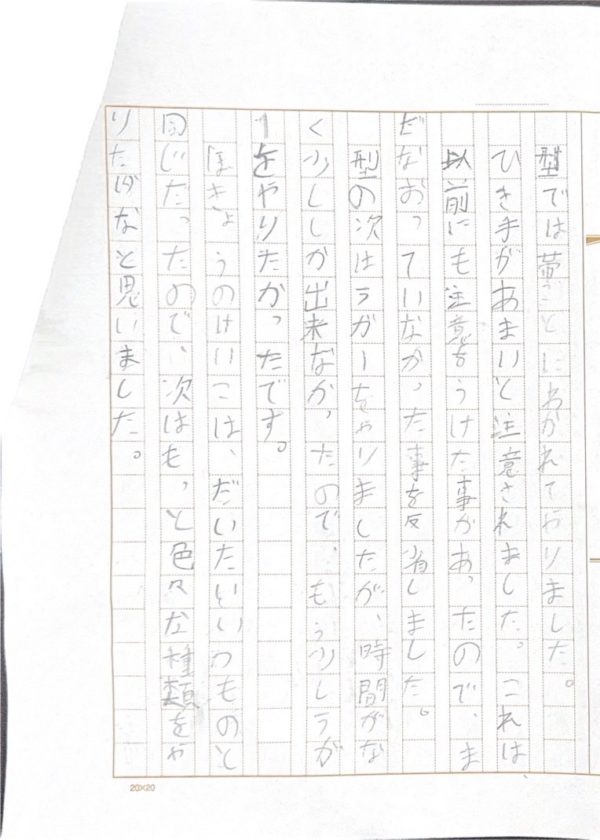 型では帯ごとにわかれてやりました。
ひき手があまいと注意されました。これは、
以前にも注意をうけた事があったので、ま
だなおっていなかった事を反省しました。
型の次はラガーをやりましたが、時間がな
く少ししか出来なかったので、もう少しラガ
ーをやりたかったです。
ほきょうのけいこは、だいたいいつものと
同じだったので、次はもっと色々な種類をや
りたいなと思いました。
20×20